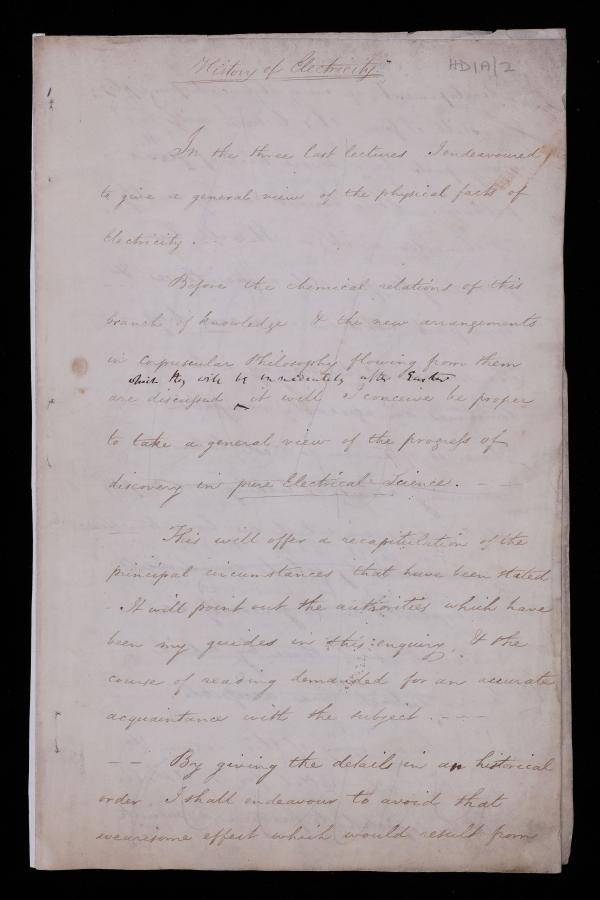 History of Electricity.
HD/A/2
In the three last lectures I endeavoured
to give a general view of the physical facts of
Electricity.
Before the chemical relations of this
branch of knowledge & the new arrangements
in Corpuscular Philosophy flowing from them
which they will be immediately after Easter
are discussed it will I conceive be proper
to take a general view of the progress of
discovery in pure Electrical Science. - -
This will offer a recapitulation of the
principal circumstances that have been stated
- It will point out the authorities which have
been my guides in this enquiry, & the
course of reading demanded for an accurate
acquaintance with the subject. - - -
- - By giving the details in an historical
order, I shall endeavour to avoid that
wearisome effect which would result from